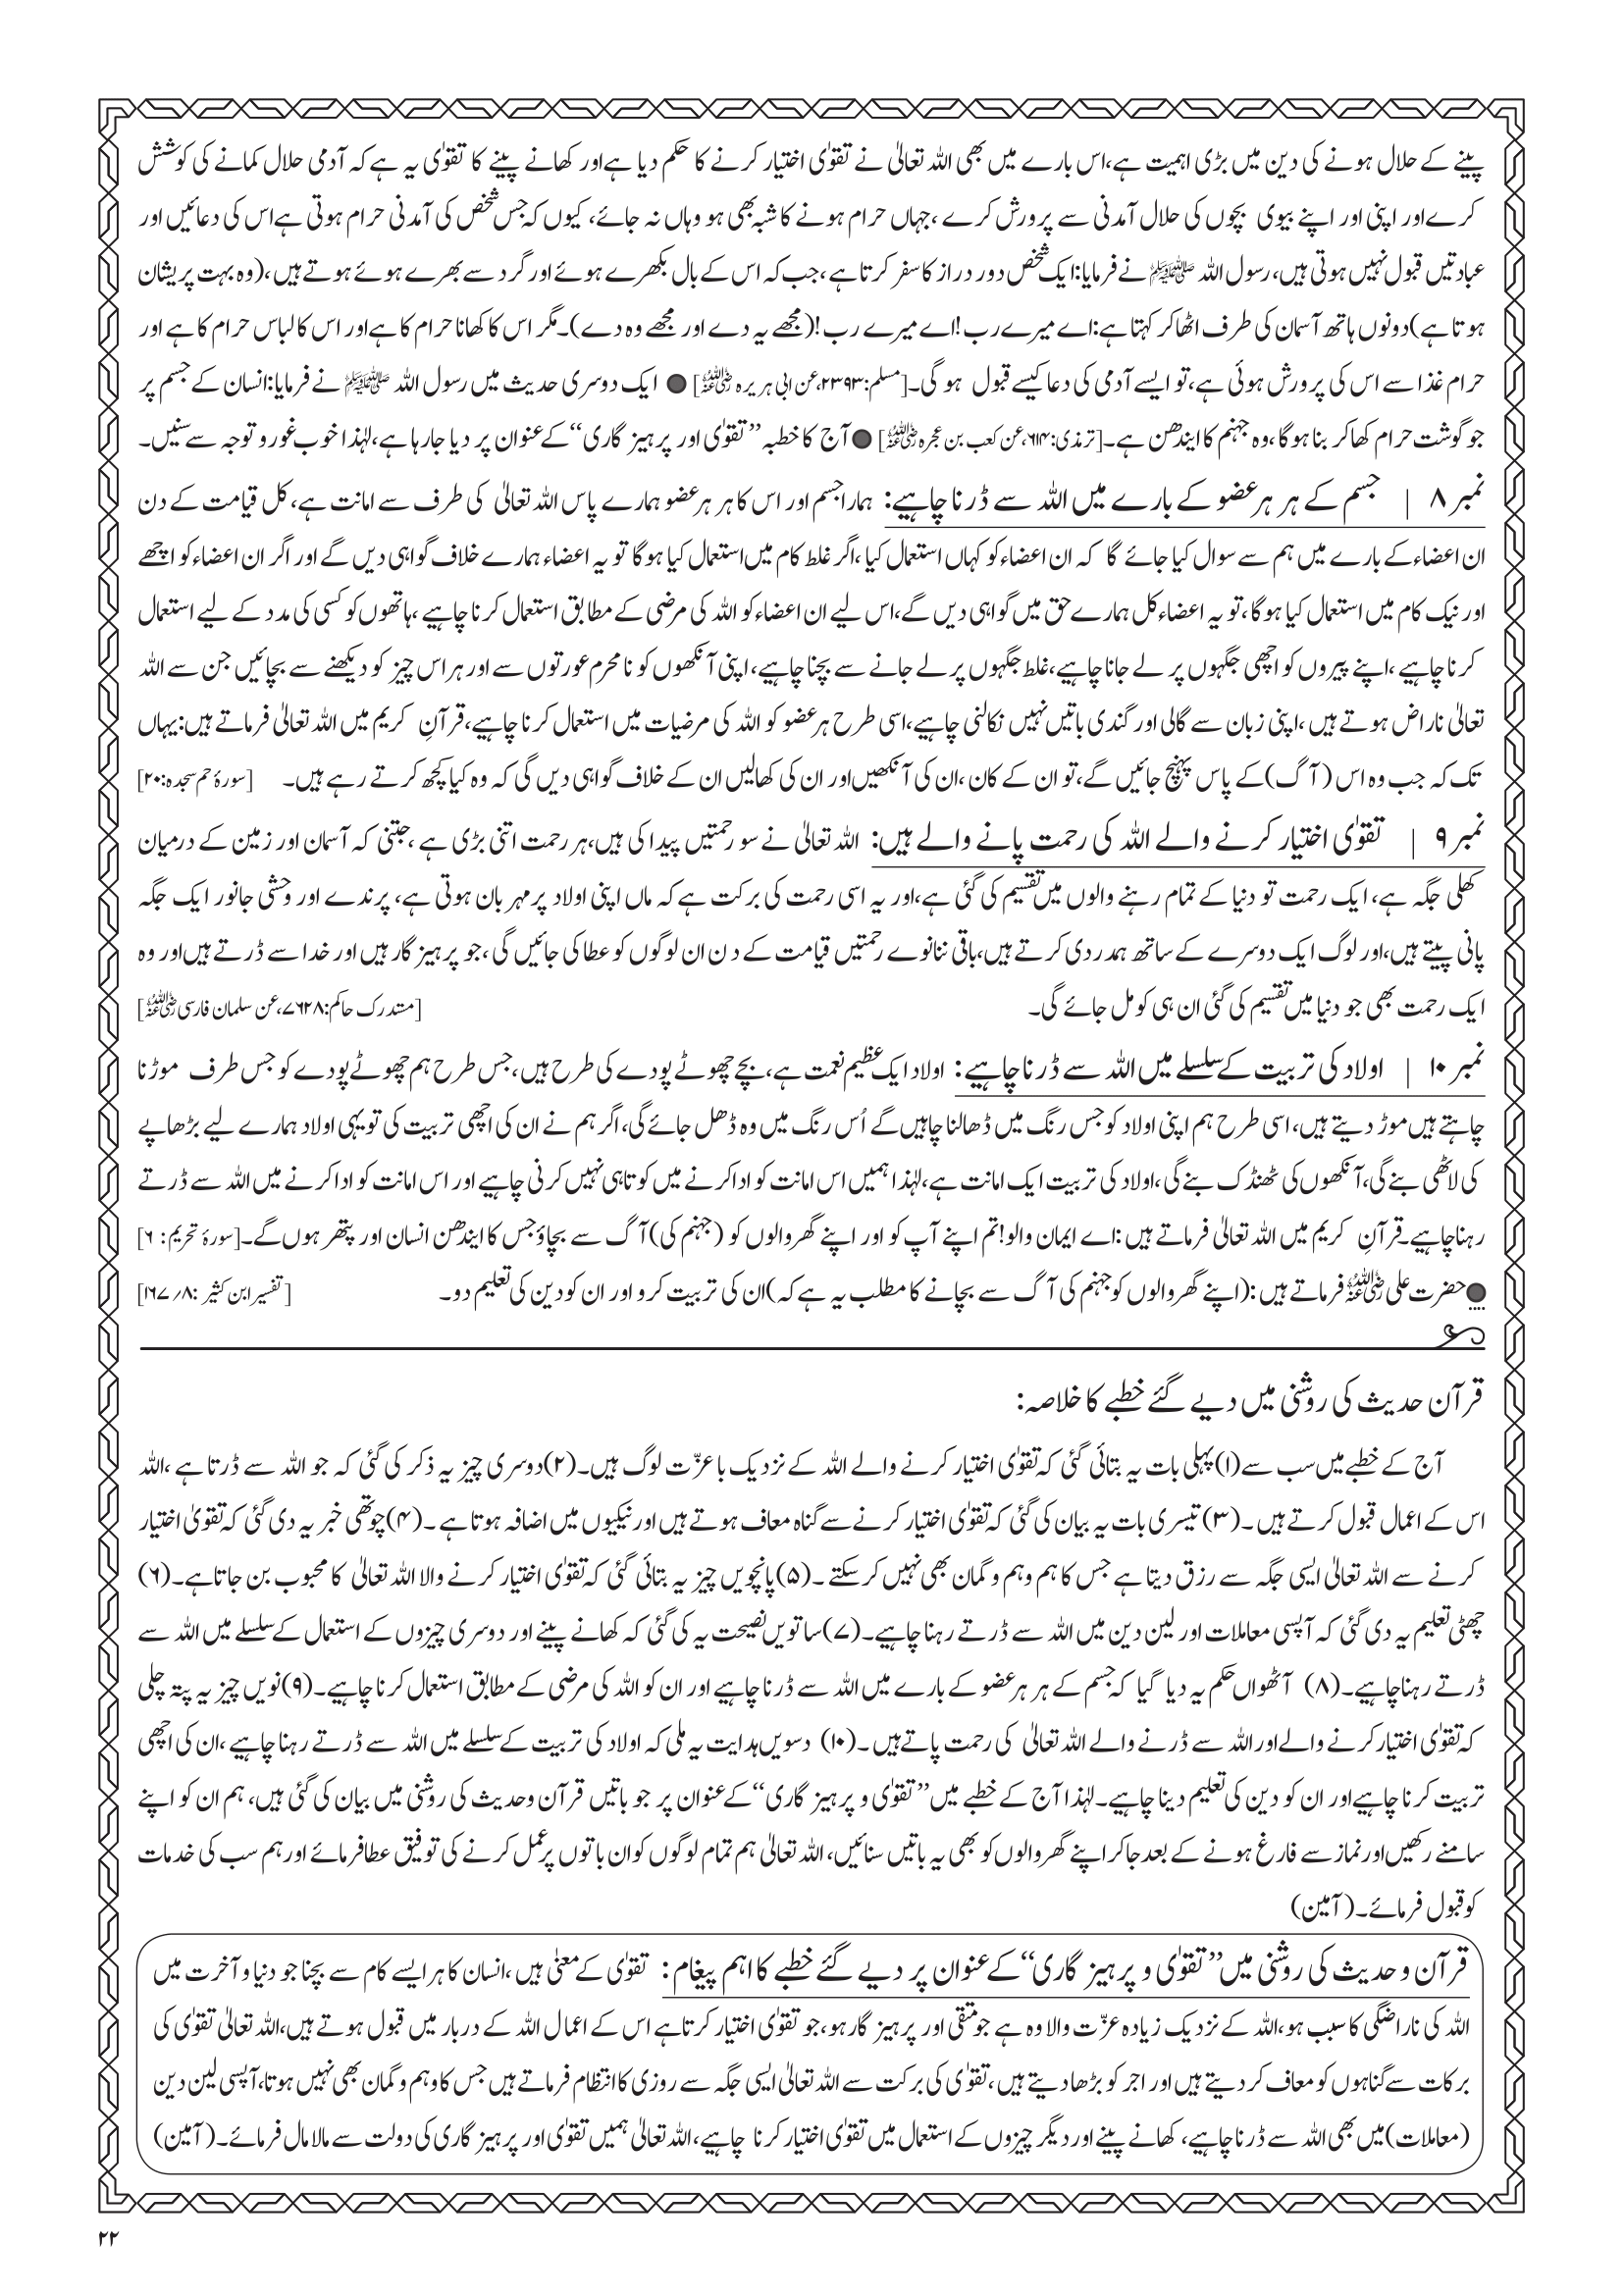 پینے کے حلال ہونے کی دین میں بڑی اہمیت ہے،اس بارے میں بھی اللہ تعالیٰ نے تقوٰی اختیار کرنے کا حکم دیا ہےاور کھانے پینے کا تقوٰی یہ ہے کہ آدمی حلال کمانے کی کوشش
کرےاور اپنی اور اپنے بیوی بچوں کی حلال آمدنی سے پرورش کرے ،جہاں حرام ہونے کا شبہ بھی ہو وہاں نہ جائے، کیوں کہ جس شخص کی آمدنی حرام ہوتی ہےاس کی دعائیں اور
عبادتیں قبول نہیں ہوتی ہیں، رسول اللہ ﷺ نے فرمایا:ایک شخص دور دراز کا سفر کرتاہے ،جب کہ اس کے بال بکھرے ہوئے اور گرد سے بھرے ہوئے ہوتے ہیں ،(وہ بہت پریشان
ہوتاہے)دونوں ہاتھ آسمان کی طرف اٹھاکر کہتا ہے:اے میرے رب !اے میرے رب !(مجھے یہ دے اور مجھے وہ دے)۔مگر اس کا کھانا حرام کا ہےاور اس کا لباس حرام کا ہے اور
حرام غذا سے اس کی پرورش ہوئی ہے،تو ایسے آدمی کی دعا کیسے قبول ہو گی۔[مسلم:۲۳۹۳،عن ابی ہریرہ رضی اللہ عنہ] ● ایک دوسری حدیث میں رسول اللہ ﷺ نے فرمایا:انسان کے جسم پر
جو گوشت حرام کھاکر بنا ہوگا ،وہ جہنم کا ایندھن ہے۔[ترمذی:۶۱۴،عن کعب بن عجرہ رضی اللہ عنہ] ●آج کا خطبہ ’’تقوٰی اور پرہیز گاری‘‘کے عنوان پر دیا جارہا ہے،لہٰذا خوب غور و توجہ سے سنیں۔
نمبر ۸ | جسم کے ہر ہر عضو کے بارے میں اللہ سے ڈرنا چاہیے: ہمارا جسم اور اس کا ہر ہر عضو ہمارے پاس اللہ تعالیٰ کی طرف سے امانت ہے، کل قیامت کے دن
ان اعضاء کے بارے میں ہم سے سوال کیا جائے گا کہ ان اعضاء کو کہاں استعمال کیا ،اگر غلط کام میں استعمال کیا ہوگا تو یہ اعضاء ہمارے خلاف گواہی دیں گے اور اگر ان اعضاء کو اچھے
اور نیک کام میں استعمال کیا ہوگا ،تو یہ اعضاء کل ہمارے حق میں گواہی دیں گے،اس لیے ان اعضاء کو اللہ کی مرضی کے مطابق استعمال کرنا چاہیے ،ہاتھوں کو کسی کی مدد کے لیے استعمال
کرنا چاہیے ،اپنے پیروں کو اچھی جگہوں پر لے جانا چاہیے،غلط جگہوں پر لے جانے سے بچنا چاہیے، اپنی آنکھوں کو نامحرم عورتوں سے اور ہر اس چیز کو دیکھنے سے بچائیں جن سے اللہ
تعالیٰ ناراض ہوتے ہیں ،اپنی زبان سے گالی اور گندی باتیں نہیں نکالنی چاہیے،اسی طرح ہر عضو کو اللہ کی مرضیات میں استعمال کرنا چاہیے،قرآنِ کریم میں اللہ تعالیٰ فرماتے ہیں:یہاں
تک کہ جب وہ اس (آگ)کے پاس پہنچ جائیں گے،تو ان کے کان ،ان کی آنکھیں اور ان کی کھالیں ان کے خلاف گواہی دیں گی کہ وہ کیا کچھ کرتے رہے ہیں۔ [سورۂ حم سجدہ:۲۰]
نمبر ۹ | تقوٰی اختیار کرنے والے اللہ کی رحمت پانے والے ہیں: اللہ تعالیٰ نے سو رحمتیں پیدا کی ہیں،ہر رحمت اتنی بڑی ہے ،جتنی کہ آسمان اور زمین کے درمیان
کھلی جگہ ہے، ایک رحمت تو دنیا کے تمام رہنے والوں میں تقسیم کی گئی ہے،اور یہ اسی رحمت کی برکت ہے کہ ماں اپنی اولاد پر مہربان ہوتی ہے، پرندے اور وحشی جانور ایک جگہ
پانی پیتے ہیں،اور لوگ ایک دوسرے کے ساتھ ہمدردی کرتے ہیں،باقی ننانوے رحمتیں قیامت کے دن ان لوگوں کو عطا کی جائیں گی ،جو پرہیز گار ہیں اور خدا سے ڈرتے ہیں اور وہ
ایک رحمت بھی جو دنیا میں تقسیم کی گئی ان ہی کو مل جائے گی۔ [مستدرک حاکم:۷۶۲۸،عن سلمان فارسی رضی اللہ عنہ]
نمبر ۱۰ | اولاد کی تربیت کے سلسلے میں اللہ سے ڈرنا چاہیے: اولاد ایک عظیم نعمت ہے، بچے چھوٹے پودے کی طرح ہیں ،جس طرح ہم چھوٹے پودے کو جس طرف موڑنا
چاہتے ہیں موڑ دیتے ہیں، اسی طرح ہم اپنی اولاد کو جس رنگ میں ڈھالنا چاہیں گے اُس رنگ میں وہ ڈھل جائے گی، اگر ہم نے ان کی اچھی تربیت کی تو یہی اولاد ہمارے لیے بڑھاپے
کی لاٹھی بنے گی،آنکھوں کی ٹھنڈک بنے گی ،اولاد کی تربیت ایک امانت ہے،لہٰذا ہمیں اس امانت کو ادا کرنے میں کوتاہی نہیں کرنی چاہیے اور اس امانت کو ادا کرنے میں اللہ سے ڈرتے
رہنا چاہیے۔قرآنِ کریم میں اللہ تعالیٰ فرماتے ہیں :اے ایمان والو!تم اپنے آپ کو اور اپنے گھر والوں کو (جہنم کی)آگ سے بچاؤ جس کا ایندھن انسان اور پتھر ہوں گے۔[سورۂ تحریم: ۶]
●حضرت علی رضی اللہ عنہ فرماتے ہیں :(اپنے گھر والوں کو جہنم کی آگ سے بچانے کا مطلب یہ ہے کہ)ان کی تربیت کرو اور ان کو دین کی تعلیم دو۔ [تفسیر ابن کثیر :۸/ ۱۶۷]
قرآن حدیث کی روشنی میں دیے گئے خطبے کا خلاصہ:
آج کے خطبے میں سب سے(۱)پہلی بات یہ بتائی گئی کہ تقوٰی اختیار کرنے والے اللہ کے نزدیک باعزّت لوگ ہیں۔(۲)دوسری چیز یہ ذکر کی گئی کہ جو اللہ سے ڈرتا ہے ،اللہ
اس کے اعمال قبول کرتے ہیں ۔(۳) تیسری بات یہ بیان کی گئی کہ تقوٰی اختیار کرنے سے گناہ معاف ہوتے ہیں اور نیکیوں میں اضافہ ہوتا ہے ۔(۴)چوتھی خبر یہ دی گئی کہ تقویٰ اختیار
کرنے سے اللہ تعالیٰ ایسی جگہ سے رزق دیتا ہے جس کا ہم وہم و گمان بھی نہیں کر سکتے ۔(۵)پانچویں چیز یہ بتائی گئی کہ تقوٰی اختیار کرنے والا اللہ تعالیٰ کا محبوب بن جاتا ہے۔(۶)
چھٹی تعلیم یہ دی گئی کہ آپسی معاملات اور لین دین میں اللہ سے ڈرتے رہنا چاہیے۔(۷)ساتویں نصیحت یہ کی گئی کہ کھانے پینے اور دوسری چیزوں کے استعمال کے سلسلے میں اللہ سے
ڈرتے رہنا چاہیے۔(۸) آٹھواں حکم یہ دیا گیا کہ جسم کے ہر ہر عضو کے بارے میں اللہ سے ڈرنا چاہیے اور ان کو اللہ کی مرضی کے مطابق استعمال کرنا چاہیے۔(۹)نویں چیز یہ پتہ چلی
کہ تقوٰی اختیار کرنے والے اور اللہ سے ڈرنے والے اللہ تعالیٰ کی رحمت پاتے ہیں ۔(۱۰) دسویں ہدایت یہ ملی کہ اولاد کی تربیت کے سلسلے میں اللہ سے ڈرتے رہنا چاہیے ،ان کی اچھی
تربیت کرنا چاہیے اور ان کو دین کی تعلیم دینا چاہیے۔لہٰذا آج کے خطبے میں’’تقوٰی و پرہیز گاری‘‘کے عنوان پر جو باتیں قرآن وحدیث کی روشنی میں بیان کی گئی ہیں، ہم ان کو اپنے
سامنے رکھیں اور نماز سے فارغ ہونے کے بعد جاکر اپنے گھر والوں کو بھی یہ باتیں سنائیں، اللہ تعالیٰ ہم تمام لوگوں کو ان باتوں پر عمل کرنے کی توفیق عطا فرمائے اور ہم سب کی خدمات
کو قبول فرمائے۔(آمین)
قرآن و حدیث کی روشنی میں’’تقوٰی و پرہیز گاری‘‘کے عنوان پر دیے گئے خطبے کا اہم پیغام: تقوٰی کے معنٰی ہیں ،انسان کا ہر ایسے کام سے بچنا جو دنیا و آخرت میں
اللہ کی ناراضگی کا سبب ہو،اللہ کے نزدیک زیادہ عزّت والا وہ ہے جو متقی اور پرہیز گار ہو ،جو تقوٰی اختیار کرتا ہے اس کے اعمال اللہ کے دربار میں قبول ہوتے ہیں،اللہ تعالیٰ تقوٰی کی
برکات سے گناہوں کو معاف کر دیتے ہیں اور اجر کو بڑھا دیتے ہیں ،تقوٰی کی برکت سے اللہ تعالیٰ ایسی جگہ سے روزی کا انتظام فرماتے ہیں جس کا وہم و گمان بھی نہیں ہوتا،آپسی لین دین
(معاملات)میں بھی اللہ سے ڈرنا چاہیے، کھانے پینے اور دیگر چیزوں کے استعمال میں تقوٰی اختیار کرنا چاہیے،اللہ تعالیٰ ہمیں تقوٰی اور پرہیز گاری کی دولت سے مالامال فرمائے۔(آمین)
۲۲